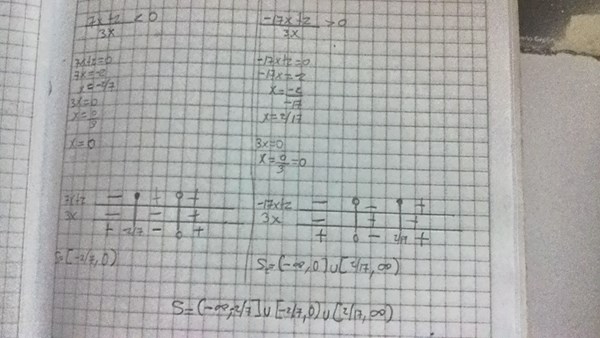 7x+2 < 0
3x
7x+2=0
3x=-2
x=-2/7
3x=0
x=0
3
x=0
7x+2 - + +
3x - - +
+ -2/7 - 0 +
S=[-2/7,0)
-17x+2 >0
3x
-17x+2=0
-17x=-2
x=-2
-17
x=2/17
3x=0
x=0=0
3
-17x+2 - - +
3x - + +
+ 0 - 2/17 +
S=(-∞,0]∪[2/17,∞)
S=(-∞,-2/7]∪[-2/7,0)∪[2/17,∞)